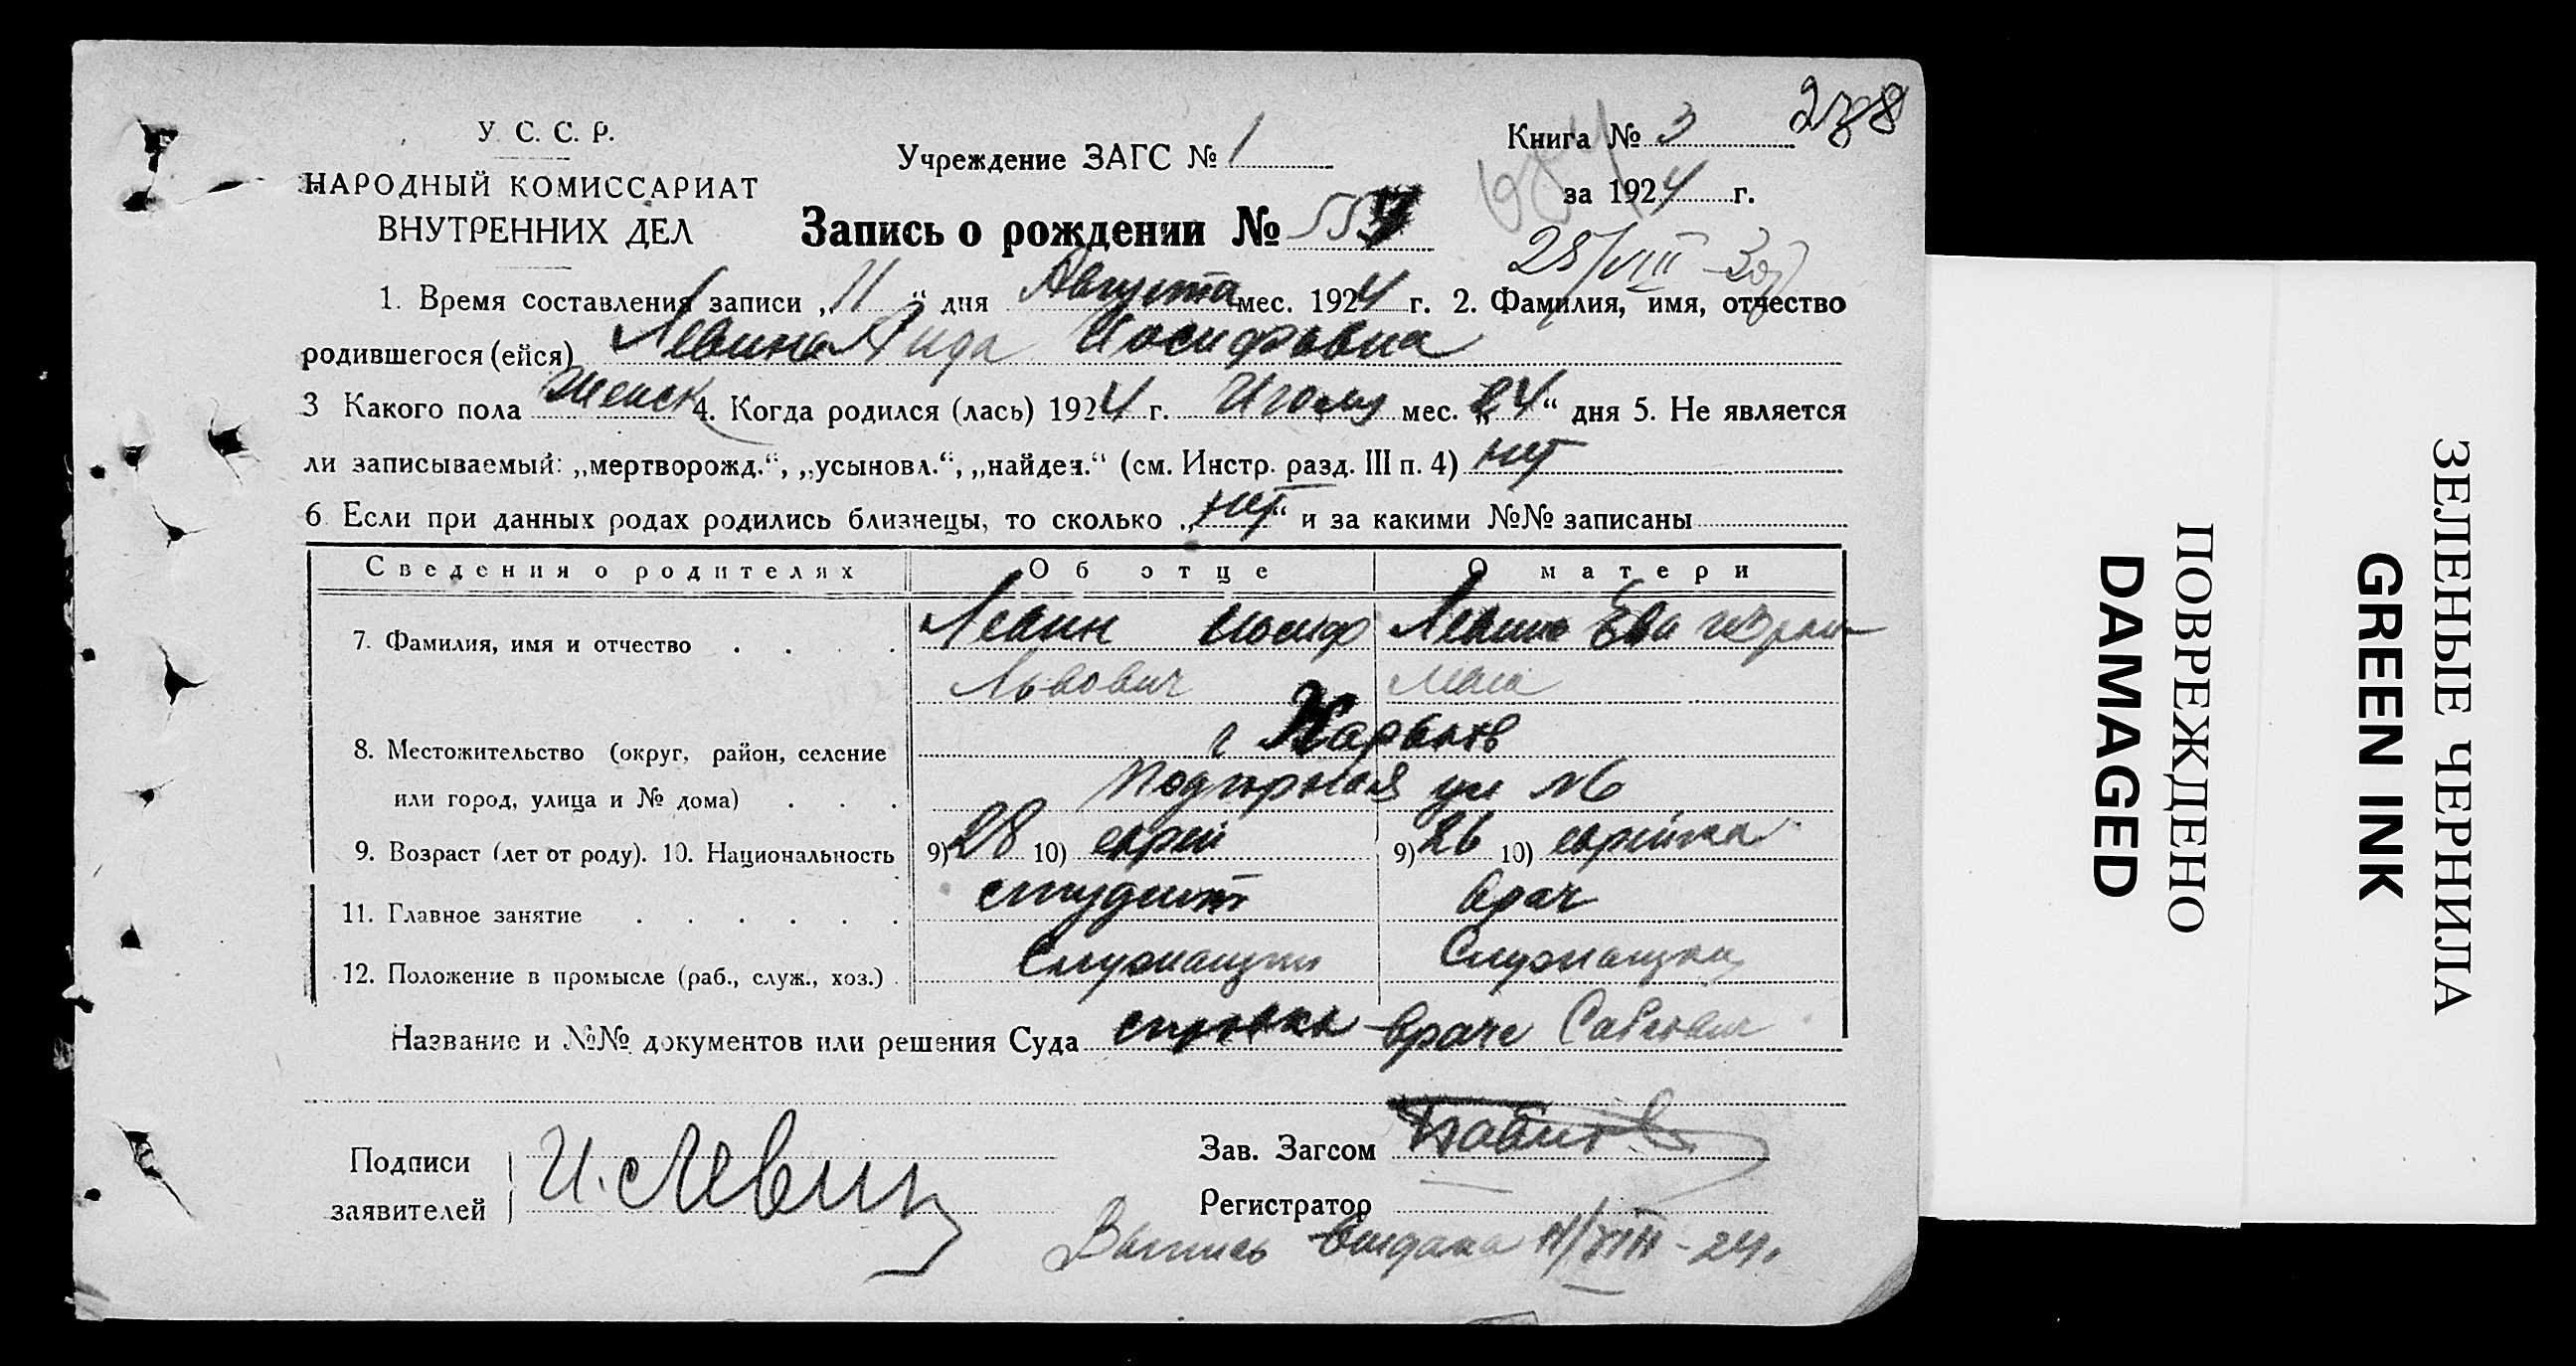 У. С. С. Р.
НАРОДНЫЙ КОМИССАРИАТ
ВНУТРЕННИХ ДЕЛ
Учреждение ЗАГС № 1
Книга № 3
за 1924 г.
Запись о рождении № 55
28/VIII
1. Время составления записи „11“ дня Августа мес. 1924 г. 2. Фамилия, имя, отчество
родившегося (ейся) Левина Аида Иосифовна
3 Какого пола Женск 4. Когда родился (лась) 1924 г. Июля мес. „24“ дня 5. Не является
ли записываемый: „мертворожд.“, „усыновл.“, „найден.“ (см. Инстр. разд. III п. 4) нет
6 Если при данных родах родились близнецы, то сколько „нет“ и за какими №№ записаны
Сведения о родителях Об отце О матери
7. Фамилия, имя и отчество Левин Иосиф Левина Ева Израи-
Львович левна
8. Местожительство (округ, район, селение г Харьков
или город, улица и № дома) Подгорная ул №6
9. Возраст (лет от роду). 10. Национальность 9) 28 10) еврей 9) 26 10) еврейка
11. Главное занятие студент врач
12. Положение в промысле (раб., служ., хоз.) Служащий Служащая
Название и №№ документов или решения Суда справка врача
Подписи
заявителей И. Левин
Зав. Загсом
Регистратор
Выпись выдана 11/VIII-24.
ПОВРЕЖДЕНО
DAMAGED
ЗЕЛЕНЫЕ ЧЕРНИЛА
GREEN INK